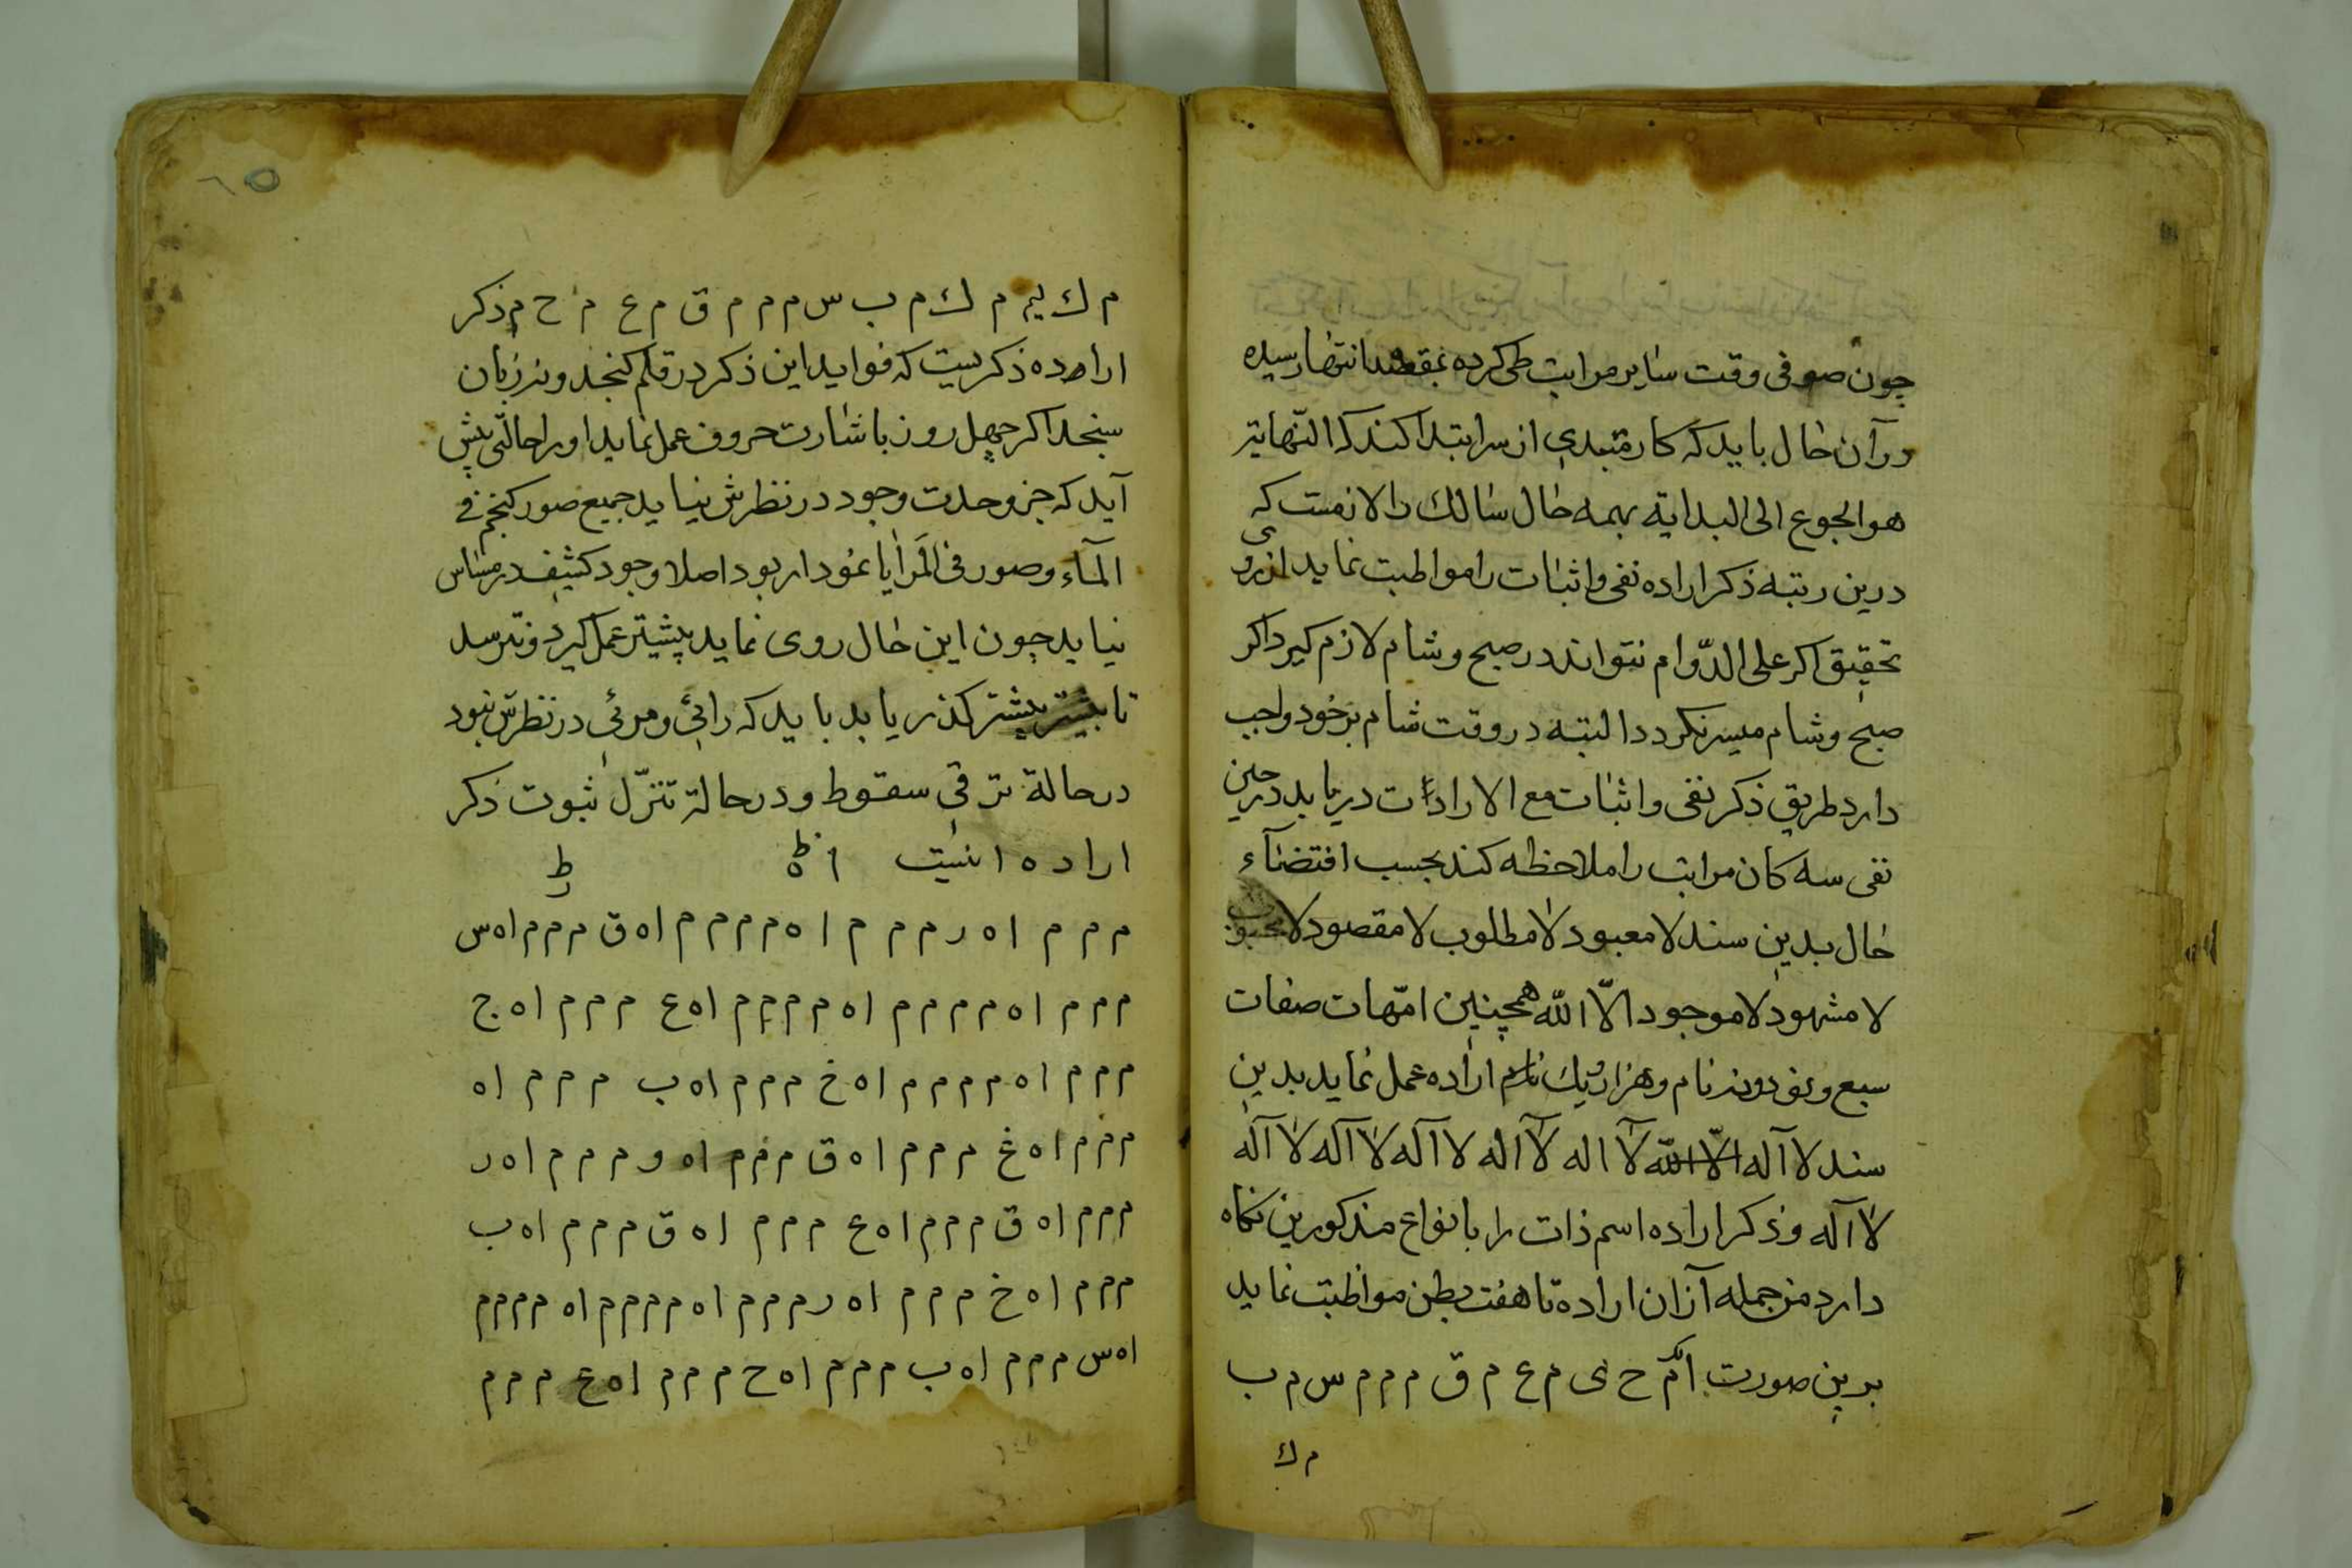 چون صوفی وقت سایر مراتب طی کرده بمقصد انتها رسیده
ورآن حال باید که کار مبتدی از سر ابتدا کند که النّهایة
هو الجوع الی البدایة بهمه حال سالك را لازمست که
درین رتبه ذکر اراده نفی واثبات را مواظبت نماید از روی
تحقیق اکر علی الدّوام نتواند در صبح وشام لازم کیرد اکر
صبح وشام میسر نکردد البته در وقت شام بر خود واجب
دارد طریق ذکر نفی واثبات مع الارادات دریابد در حین
نفی سه کان مراتب را ملاحظه کند بحسب اقتضآء
حال بدین سند لا معبود لا مطلوب لا مقصود لا محبوب
لا مشهود لا موجود الاّ الله همچنین امّهات صفات
سبع ونود ونه نام وهزار ویك نام اراده عمل نماید بدین
سند لا آله الاّ الله لآ اله لآ اله لا آله لا آله لا آله
لا آله وذکر اراده اسم ذات را بانواع مذکورین نکاه
دارد من جمله آزان اراده تا هفت بطن مواظبت نماید
برین صورت ح ی م ع م ق م م م س م ب
م ك
م ك م ك م ب س م م م ق م ع م ح م ذکر
اراده ذکریست که فواید این ذکر در قلم کنجد ونه زبان
سنجد اکر چهل روز باشارت حروف عمل نماید اورا حالتی پیش
آید که جز وحدت وجود در نظرش نیاید جمیع صور فی
المآء وصور فی المَرایا نمودار بود اصلا وجود کثیف در مساس
نیاید چون این حال روی نماید پیشتر عمل کیرد ونترسد
تا پیشتر کذر یابد باید که رائی ومرئی در نظرش نبود
در حالة ترقی سقوط ودر حالة تنزّل ثبوت ذکر
اراده انیت
م م م ا ه ر م م م ا ه م م م م ا ه ق م م م ا ه س
م م م ا ه م م م م ا ه م م م م ا ه ع م م م ا ه ج
م م م ا ه م م م م ا ه خ م م م ا ه ب م م م ا ه
م م م ا ه غ م م م ا ه ق م م م ا ه و م م م ا ه ر
م م م ا ه ق م م م ا ه ع م م م ا ه ق م م م ا ه ب
م م م ا ه خ م م م ا ه ر م م م ا ه م م م م ا ه م م م م
ا ه س م م م ا ه ب م م م ا ه ح م م م ا ه ع م م م